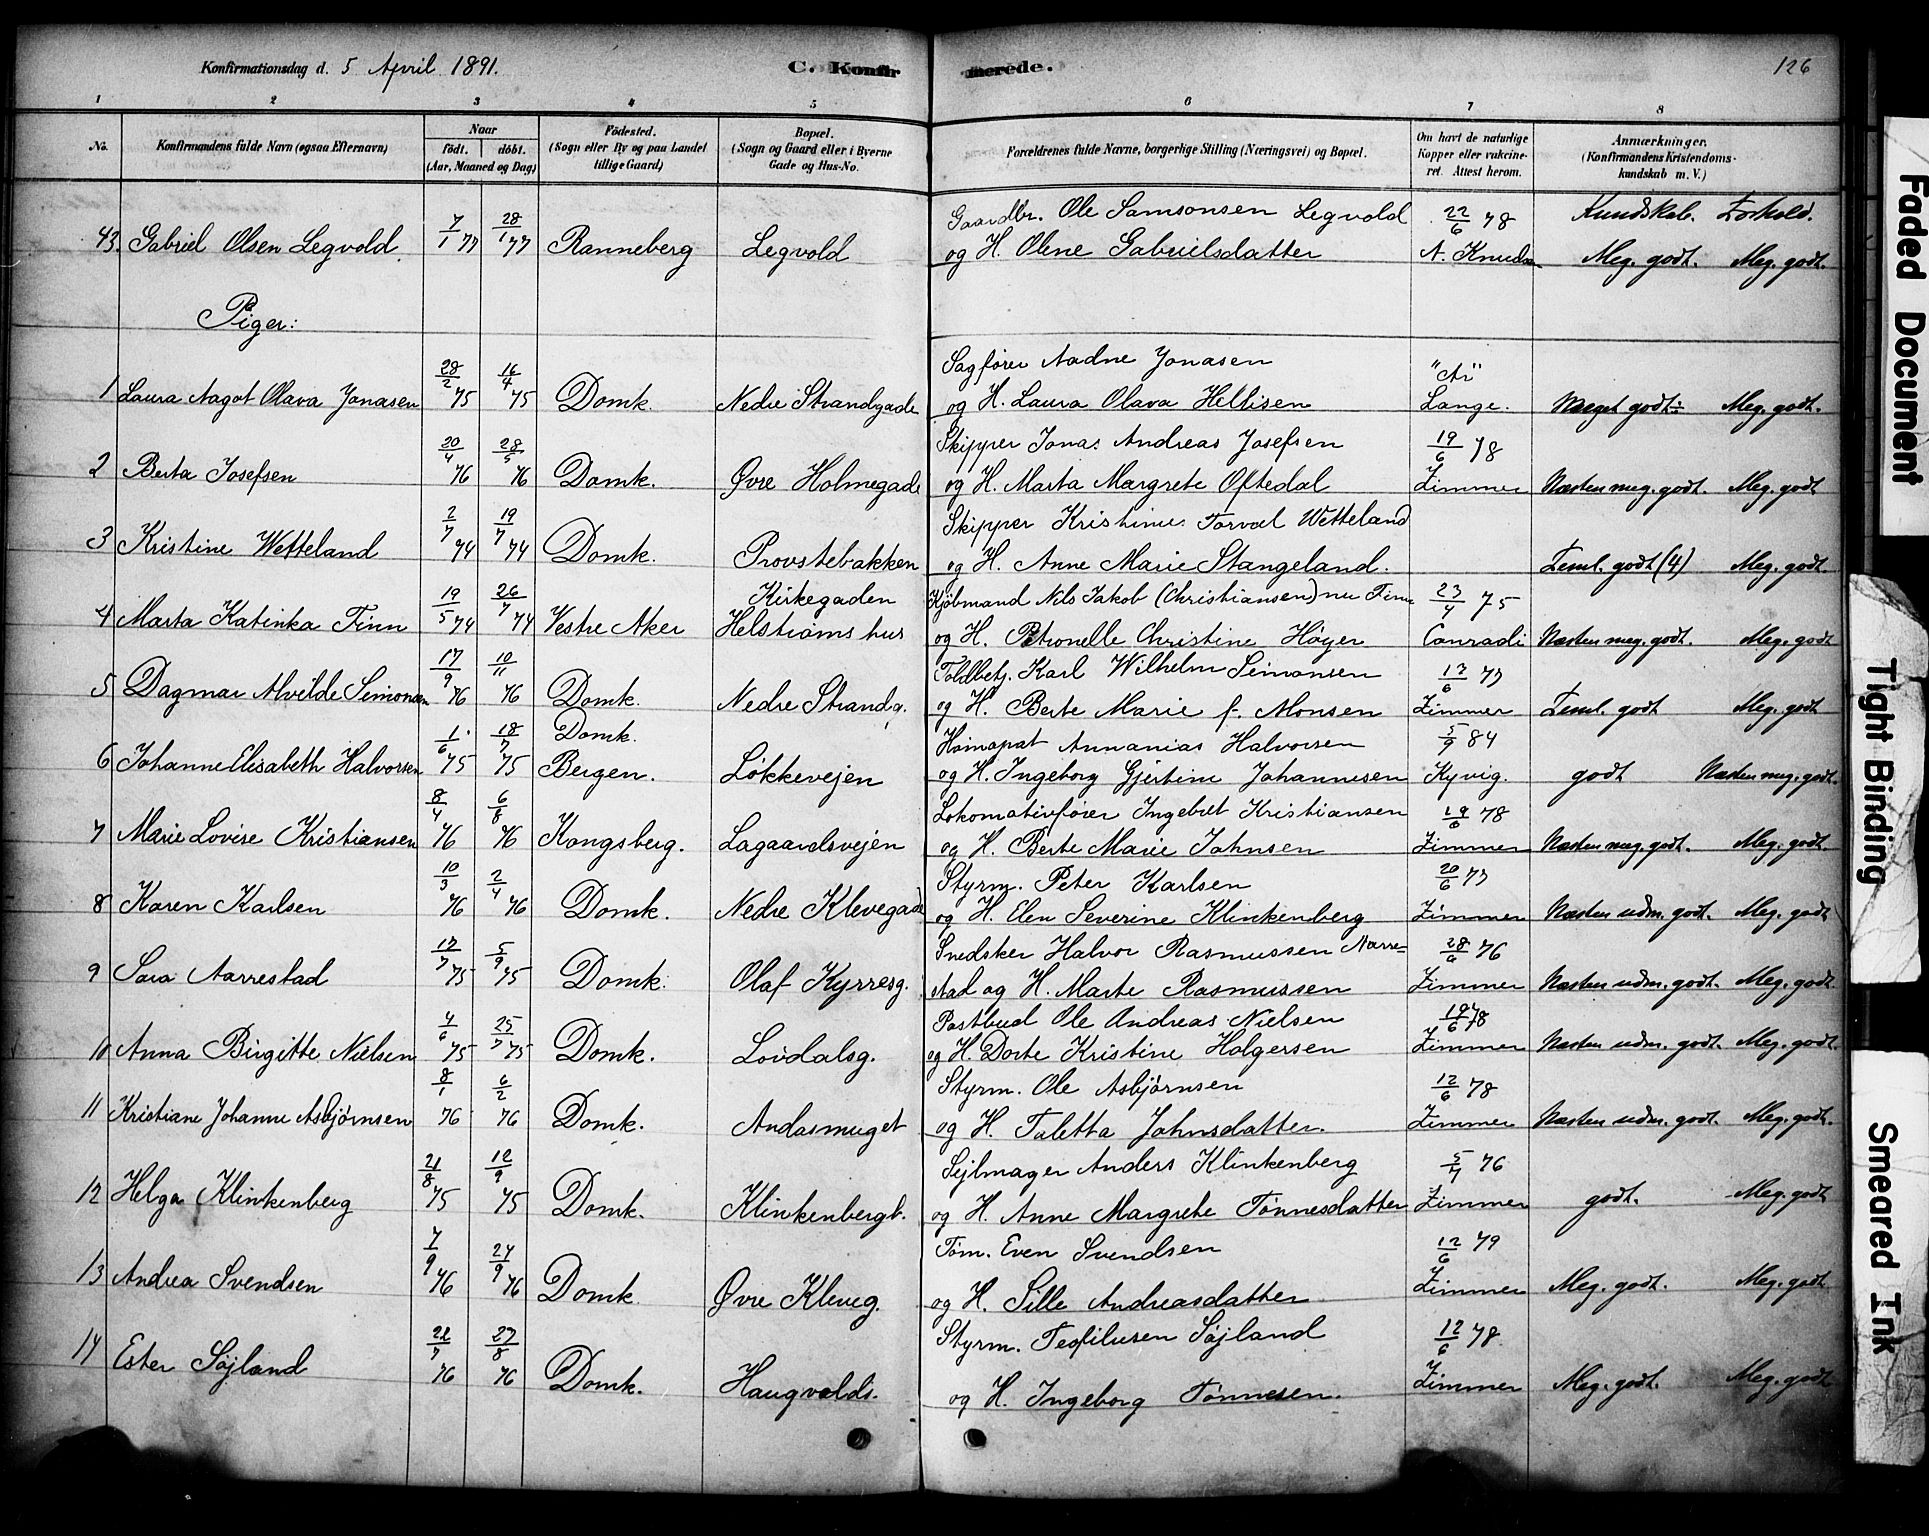 Konfirmationsdag d. 5 April 1891.
C. Konfirmerede.
126
1 2 3 4 5 6 7 8
No.
Konfirmandens fulde Navn (ogsaa Efternavn)
Naar
født. døbt.
(Aar, Maaned og Dag)
Fødested.
(Sogn eller By og paa Landet
tillige Gaard)
Bopæl.
(Sogn og Gaard eller i Byerne
Gade og Hus-No.
Forældrenes fulde Navne, borgerlige Stilling (Næringsvei) og Bopæl.
Om havt de naturlige
Kopper eller vakcine-
ret. Attest herom.
Anmærkninger.
(Konfirmandens Kristendoms-
kundskab m. V.)
Kundskab. Forhold.
43. Gabriel Olsen Legvold. 7/1 77 28/1 77 Ranneberg Legvold
Gaardbr. Ole Samsonsen Legvold 22/6 78
og H. Olene Gabrielsdatter A. Knudsen Meg. godt. Meg. godt.
Piger:
1 Laura Aagot Olava Jonasen 28/2 75 16/4 75 Domk. Nedre Strandgade
Sagfører Aadne Jonasen
og H. Laura Olava Hellisen Lange. Meget godt÷ Meg. godt.
2 Berta Josefsen 20/4 76 28/5 76 Domk. Øvre Holmegade
Skipper Jonas Andreas Josefsen 19/6 78
og H. Marta Margrete Oftedal Zimmer Næsten meg. godt. Meg. godt
3 Kristine Wetteland 2/7 74 19/7 74 Domk. Provstebakken
Skipper Kristine Torval Wetteland
og H. Anne Marie Stangeland. Teml. godt (4) Meg. godt.
4 Marta Katinka Finn 19/5 74 26/7 74 Vestre Aker Kirkegaden
Helstrøms hus
Kjøbmand Nils Jakob (Christiansen) nu Finn 23/4 75
og H. Petronelle Christine Höyer Conradi Næsten meg. godt. Meg. godt
5 Dagmar Alvilde Simonsen 17/9 76 10/11 76 Domk. Nedre Strandg.
Toldbetj. Karl Wilhelm Simonsen 13/6 77
og H. Berte Marie f. Monsen Zimmer Teml. godt Meg. godt
6 Johanne Elisabeth Halvorsen 1/6 75 18/7 75 Domk.
Bergen. Løkkevejen
Homopat Annanias Halvorsen 5/9 84
og H. Ingeborg Gjertine Johannesen Kyvig. godt Næsten meg. godt.
7 Marie Lovise Kristiansen 8/4 76 6/8 76 Kongsberg. Lagaardsvejen
Lokomotivfører Ingebret Kristiansen 19/6 78
og H. Berte Marie Johnsen Zimmer Næsten meg. godt. Meg. godt.
8 Karen Karlsen 10/3 76 2/4 76 Domk. Nedre Klevegade
Styrm. Peter Karlsen 20/6 77
og H. Elen Severine Klinkenberg Zimmer Næsten udm. godt. Meg. godt
9 Sara Aarrestad 17/7 75 5/9 75 Domk. Olaf Kyrresg.
Snedsker Halvor Rasmussen Aarre- 28/6 76
stad og H. Marte Rasmussen Zimmer Næsten udm. godt. Meg. godt
10 Anna Birgitte Nielsen 4/6 75 25/7 75 Domk. Lovdalsg.
Postbud Ole Andreas Nielsen 19/6 78
og H. Dorte Kristine Holgersen Zimmer Næsten udm. godt. Meg. godt.
11 Kristiane Johanne Asbjørnsen 8/1 76 6/2 76 Domk. Andasmuget
Styrm. Ole Asbjørnsen 12/6 78
og H. Taletta Johnsdatter. Zimmer Næsten udm. godt. Meg. godt.
12 Helga Klinkenberg 21/8 75 12/9 75 Domk. Klinkenbergb.
Sejlmager Anders Klinkenberg 5/7 76
og H. Anne Margrete Tønnesdatter Zimmer godt. Meg. godt
13 Andrea Svendsen 7/9 76 24/9 76 Domk. Øvre Kleveg.
Tøm. Even Svendsen 12/6 79
og H. Sille Andreasdatter Zimmer Meg. godt. Meg. godt
14 Ester Søjland 21/7 76 27/8 76 Domk. Haugvalds.
Styrm. Teofilusen Søjland 12/6 78.
og H. Ingeborg Tønnesen. Zimmer Meg. godt. Meg. godt
Faded Document
Tight Binding
Smeared Ink